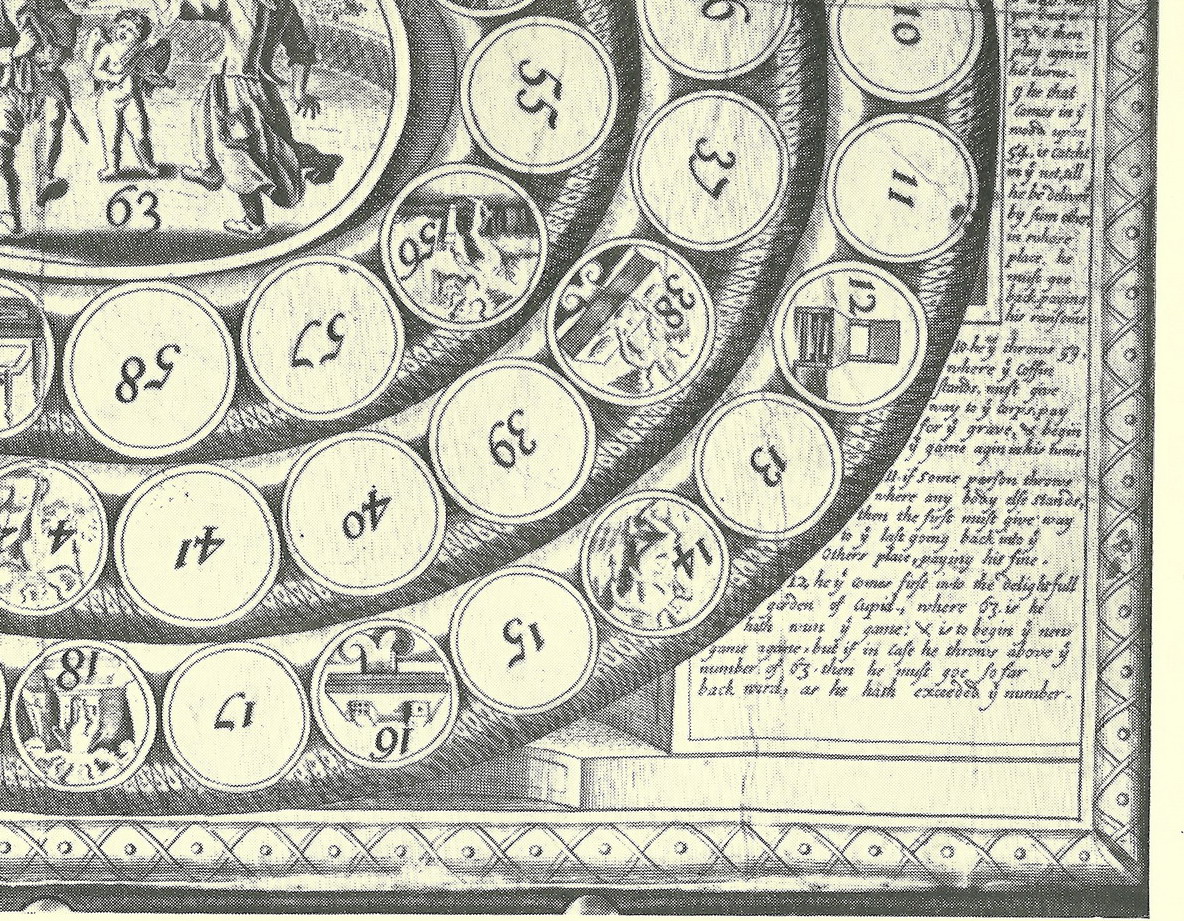 55
6
10
37
11
63
56
38
12
57
58
39
13
40
41
4
14
15
16
17
18
then
play again
his turne.
9 he that
Comes in ẏ
54, is Catcht
in ẏ net, till
he be deliver
by sum other
in whose
place, he
must goe
back, paying
his ransome
10 he ẏ throws 59,
where ẏ Coffin
stands, must give
way to ẏ Corps, pay
for ẏ grave, & begin
ẏ game agin in his turne
11 if Some parson throws
where any body else stands,
then the first must give way
to ẏ last going back into ẏ
Others place, paying his fine.
12, he ẏ comes first into the delightfull
garden of Cupid, where 63 is he
hath wun ẏ game: & is to begin ẏ new
game againe, but if in Case he throws above ẏ
number of 63. then he must goe so far
back ward, as he hath exceeded ẏ number.